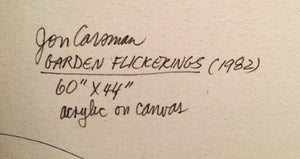 Jon Carsman
GARDEN FLICKERINGS (1982)
60" X 44"
acrylic on canvas